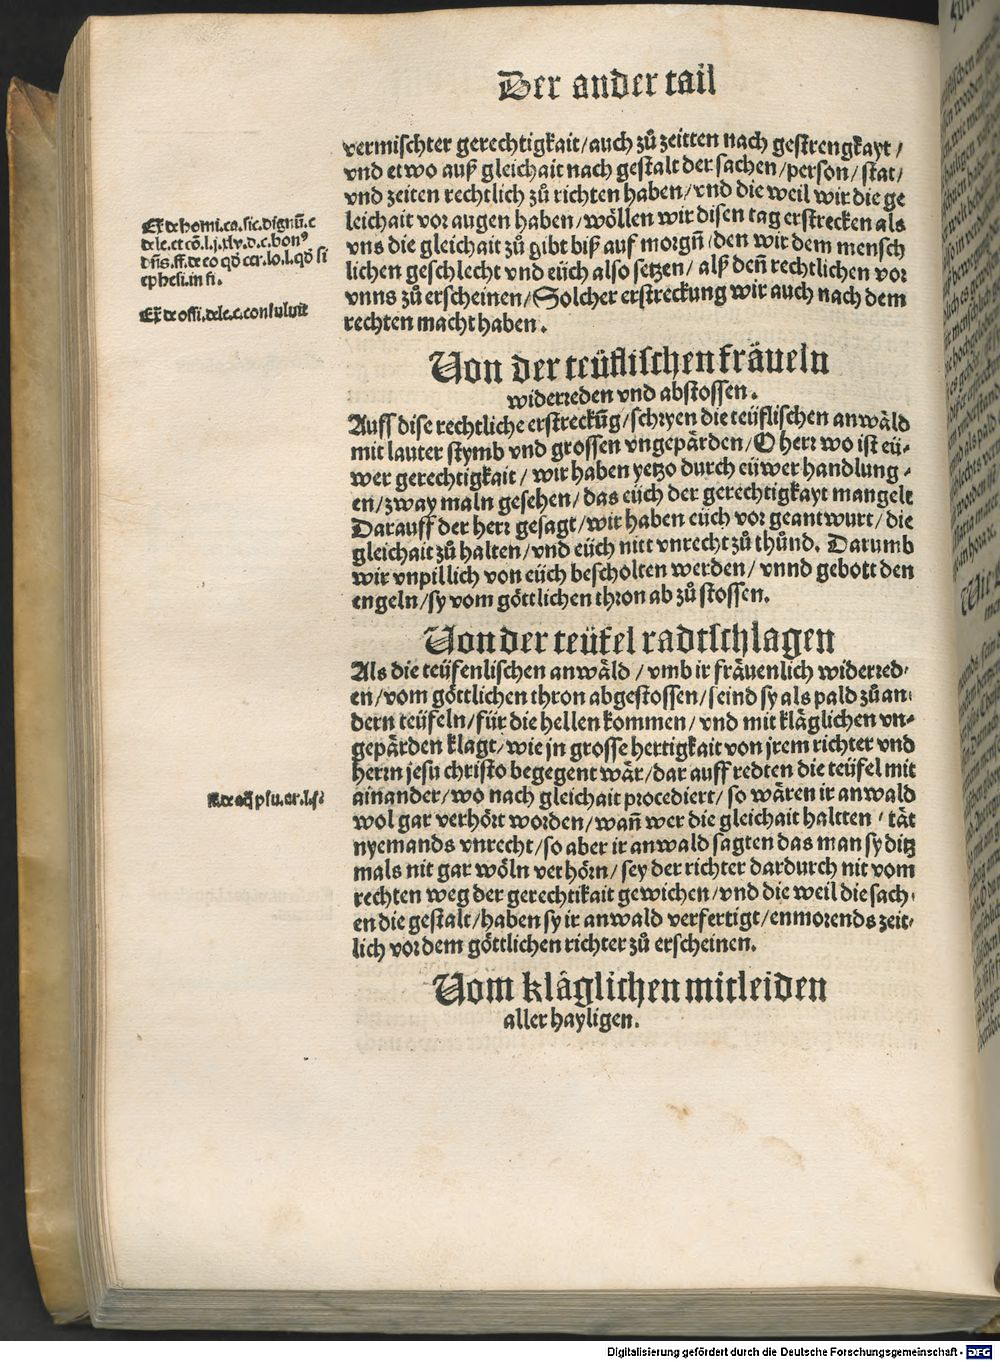 Der ander tail
vermischter gerechtigkait/auch zů zeitten nach gestrengkayt /
vnd etwo auß gleichait nach gestalt der sachen/person/ stat/
vnd zeiten rechtlich zů richten haben/vnd die weil wir die ge
leichait vor augen haben/wöllen wir disen tag erstrecken als
vns die gleichait zů gibt biß auf morgñ/den wir dem mensch
lichen geschlecht vnd eüch also setzen/ alß deñ rechtlichen vor
vnns zů erscheinen/Solcher erstreckung wir auch nach dem
rechten macht haben.
Ex̃ de homi.ca.sic.dignũ.c
de le.et cõ.l.j.xlv.d.c.bonꝰ
dñs.ff.de eo qđ cer.lo.l.qđ si
ephesi.in fi.
Ex̃ de offi.dele.c.consuluit
Von der teüflischen fräueln
widerreden vnd abstossen.
Auff dise rechtliche erstreckũg/schryen die teüflischen anwäld
mit lauter stymb vnd grossen vngepärden/O herr wo ist eü-
wer gerechtigkait/ wir haben yetzo durch eüwer handlung-
en/zway maln gesehen/das eüch der gerechtigkayt mangelt
Darauff der herr gesagt/wir haben eüch vor geantwurt/die
gleichait zů halten/vnd eüch nitt vnrecht zů thůnd. Darumb
wir vnpillich von eüch bescholten werden/ vnnd gebott den
engeln/sy vom göttlichen thron ab zů stossen.
Von der teüfel radtschlagen
Als die teüfenlischen anwäld / vmb ir fräuenlich widerred-
en/vom göttlichen thron abgestossen/seind sy als pald zů an-
dern teüfeln/für die hellen kommen/ vnd mit kläglichen vn-
gepärden klagt/wie jn grosse hertigkait von jrem richter vnd
herrn jesu christo begegent wär/dar auff redten die teüfel mit
ainander/wo nach gleichait procediert/ so wären ir anwald
wol gar verhört worden/wañ wer die gleichait haltten / tät
nyemands vnrecht/so aber ir anwald sagten das man sy ditz
mals nit gar wöln verhörn/sey der richter dardurch nit vom
rechten weg der gerechtikait gewichen/vnd die weil die sach-
en die gestalt/haben sy ir anwald verfertigt/enmorends zeit-
lich vor dem göttlichen richter zů erscheinen.
Vom kläglichen mitleiden
aller hayligen.
Digitalisierung gefördert durch die Deutsche Forschungsgemeinschaft - DFG